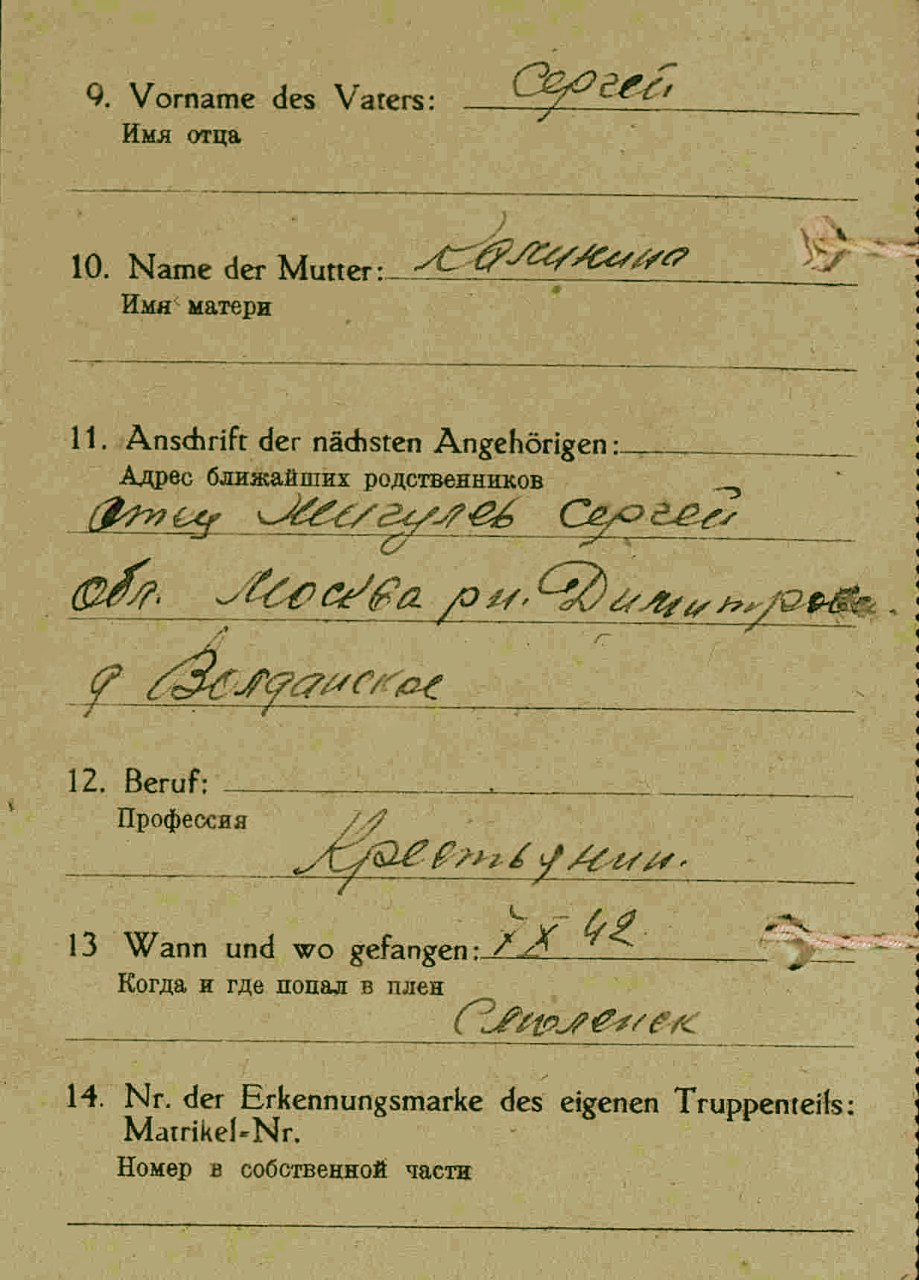 9. Vorname des Vaters: Сергей
Имя отца
10. Name der Mutter: Калинина
Имя матери
11. Anschrift der nächsten Angehörigen:
Адрес ближайших родственников
отец Жигулев Сергей
обл. Москва рн. Димитрова.
д Волданское
12. Beruf:
Профессия
Крестьянин.
13 Wann und wo gefangen: 7 X 42
Когда и где попал в плен
Смоленск
14. Nr. der Erkennungsmarke des eigenen Truppenteils:
Matrikel-Nr.
Номер в собственной части